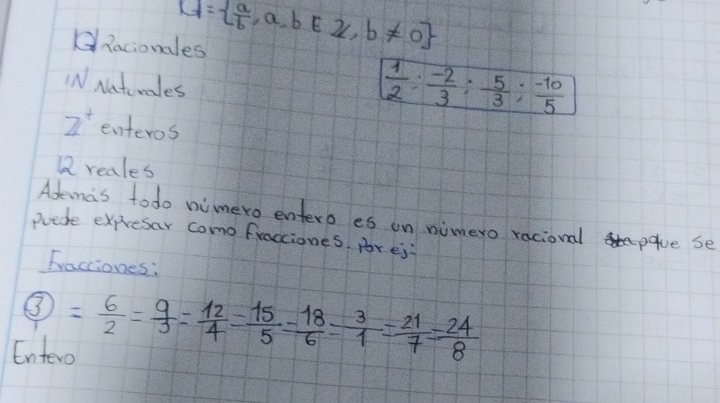 Q={a/b, a,b ∈ Z, b ≠ 0}
Q Racionales
1/2 ; -2/3 ; 5/3 ; -10/5
IN Naturales
Z⁺ enteros
R reales
Además todo número entero es un número racional pque se
puede expresar como fracciones. Por ej:
Fracciones:
3 = 6/2 = 9/3 = 12/4 = 15/5 = 18/6 = 3/1 = 21/7 = 24/8
Entero